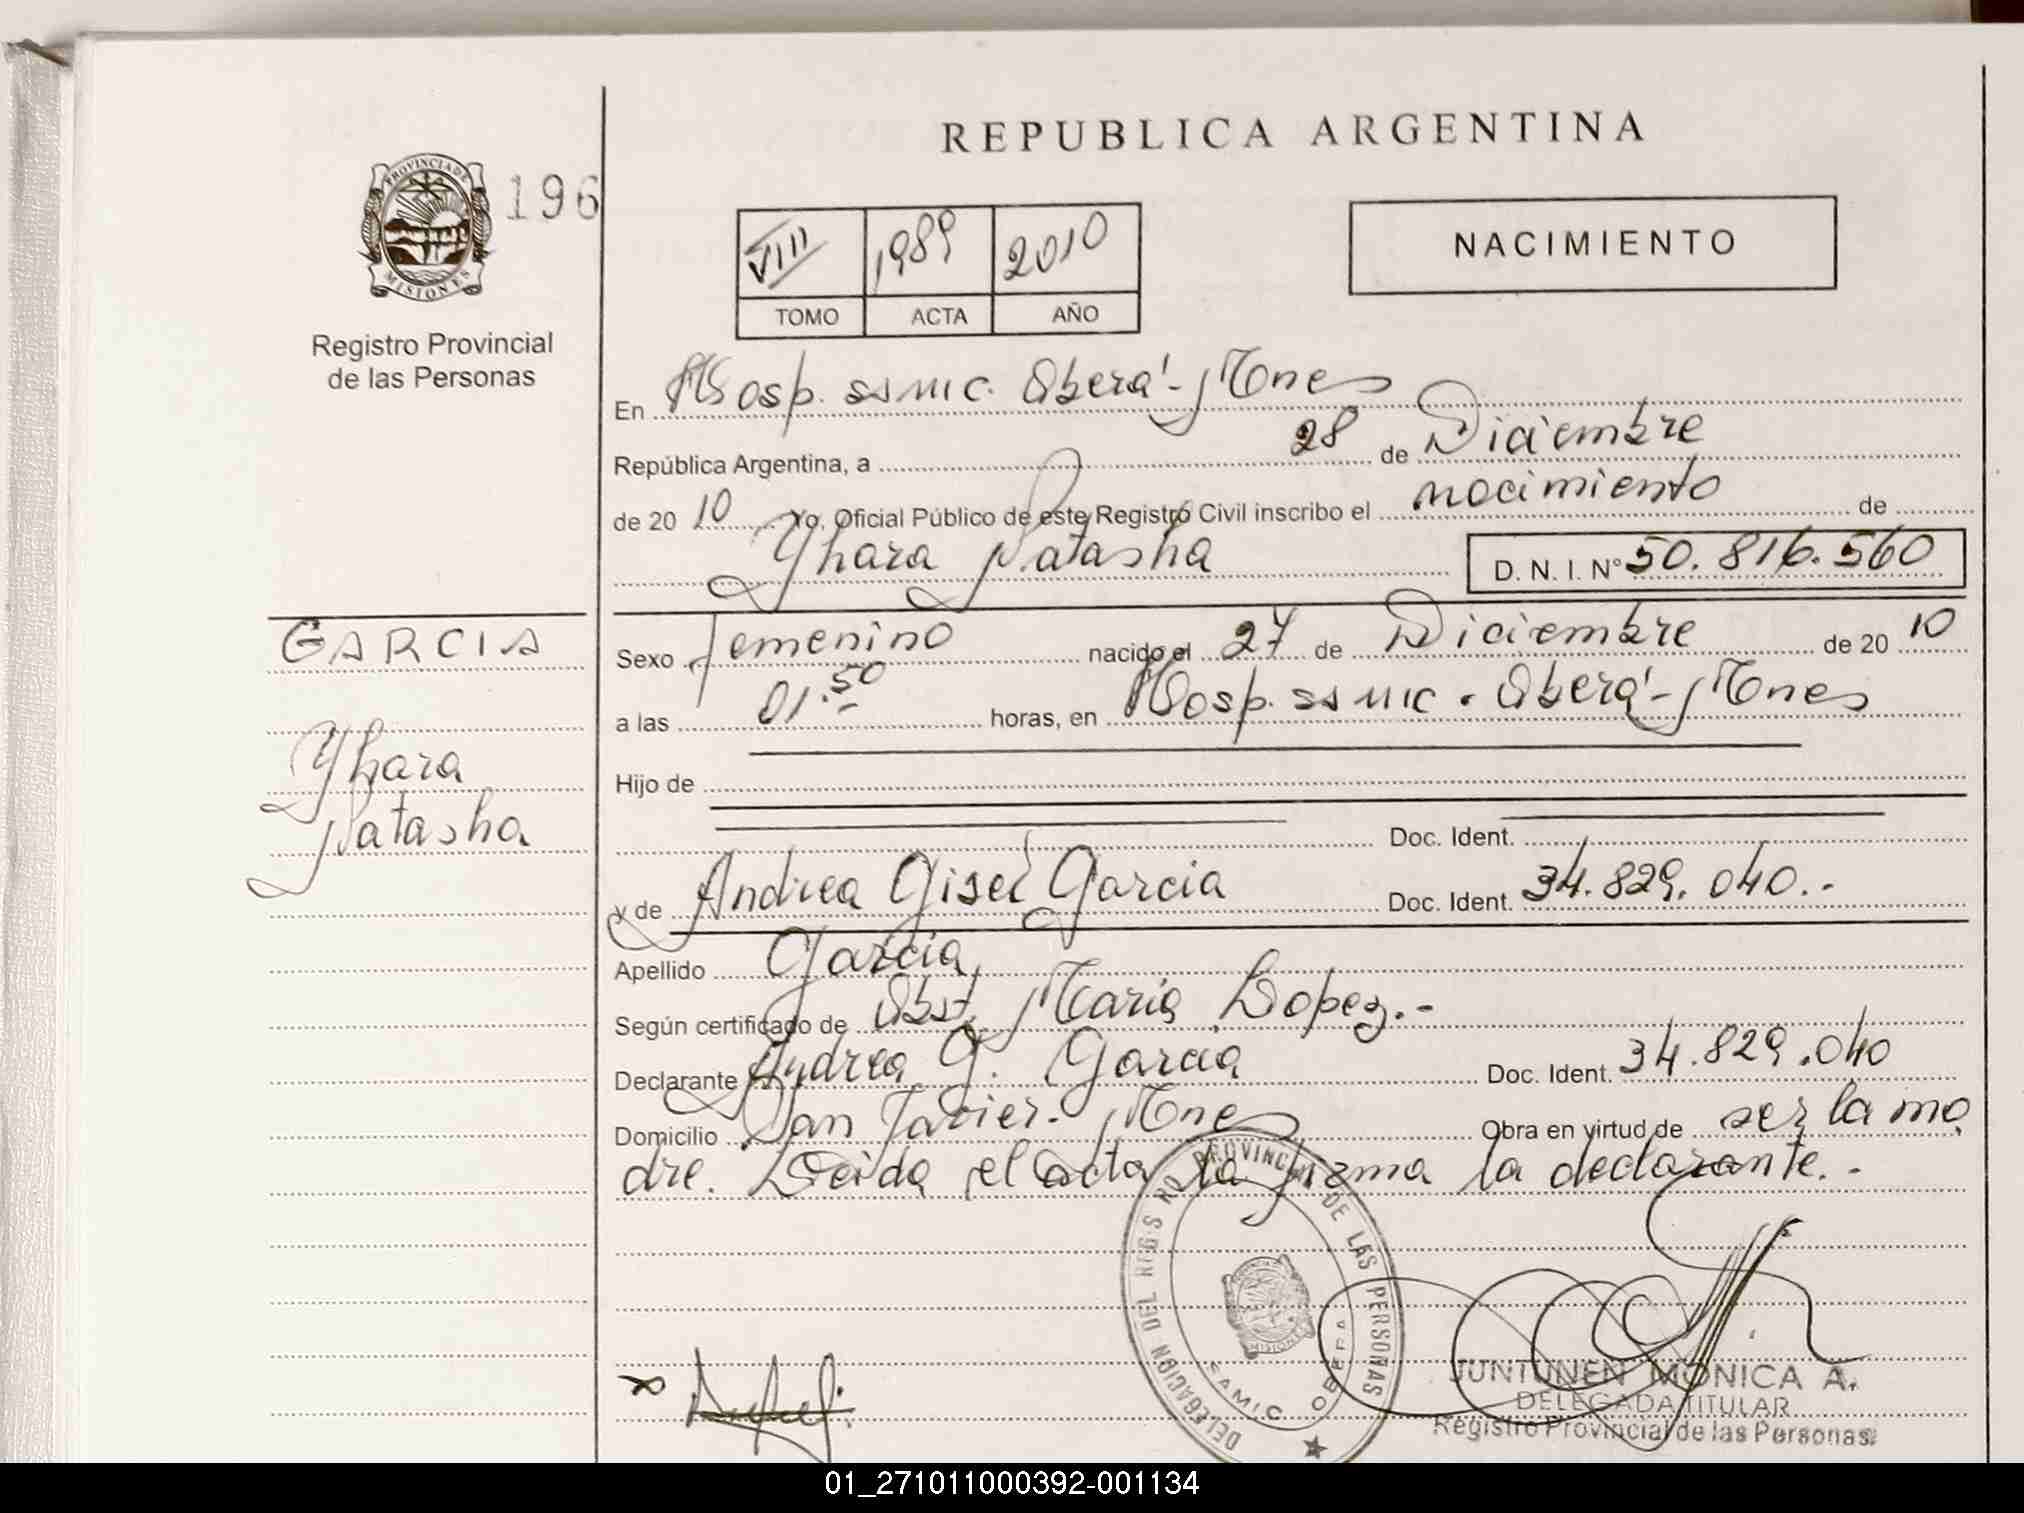 REPUBLICA ARGENTINA
PROVINCIA DE
MISIONES
196
VIII 1989 2010
TOMO ACTA AÑO
NACIMIENTO
Registro Provincial
de las Personas
En Hosp. ssmic. Oberá - Mnes
República Argentina, a 28 de Diciembre
de 20 10 Yo, Oficial Público de este Registro Civil inscribo el nacimiento de
Yhara Natasha D. N. I. N° 50.816.560
GARCIA
Yhara
Natasha
Sexo femenino nacido el 27 de Diciembre de 20 10
a las 01.50 horas, en Hosp. ssmic. Oberá - Mnes
Hijo de
Doc. Ident.
y de Andrea Gisel Garcia Doc. Ident. 34.829.040.-
Apellido Garcia
Según certificado de Obst. Maria Lopez.-
Declarante Andrea G. Garcia Doc. Ident. 34.829.040
Domicilio San Javier - Mnes Obra en virtud de ser la ma
dre. Leida el acta la firma la declarante.-
DELEGACION DEL REGIS RO PROVINCIAL DE LAS PERSONAS
MISIONES
SAMIC OBERA
JUNTUNEN MONICA A.
DELEGADA TITULAR
Registro Provincial de las Personas
01_271011000392-001134